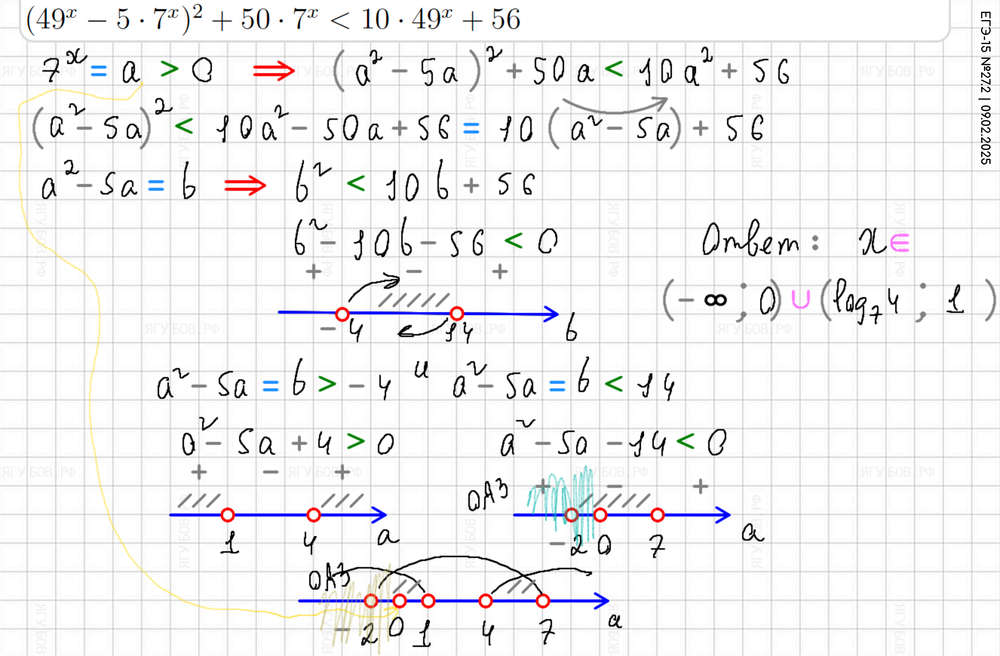 (49^x − 5 · 7^x)^2 + 50 · 7^x < 10 · 49^x + 56
ЕГЭ-15 №272 | 09.02.2025
7^x = a > 0 ⇒ (a^2 − 5a)^2 + 50a < 10a^2 + 56
(a^2 − 5a)^2 < 10a^2 − 50a + 56 = 10(a^2 − 5a) + 56
a^2 − 5a = b ⇒ b^2 < 10b + 56
b^2 − 10b − 56 < 0
+ − +
−4 14 b
a^2 − 5a = b > −4 и a^2 − 5a = b < 14
a^2 − 5a + 4 > 0 a^2 − 5a − 14 < 0
+ − + ОДЗ + − +
1 4 a −2 0 7 a
ОДЗ
−2 0 1 4 7 a
Ответ: x ∈
(−∞; 0) ∪ (log_7 4; 1)